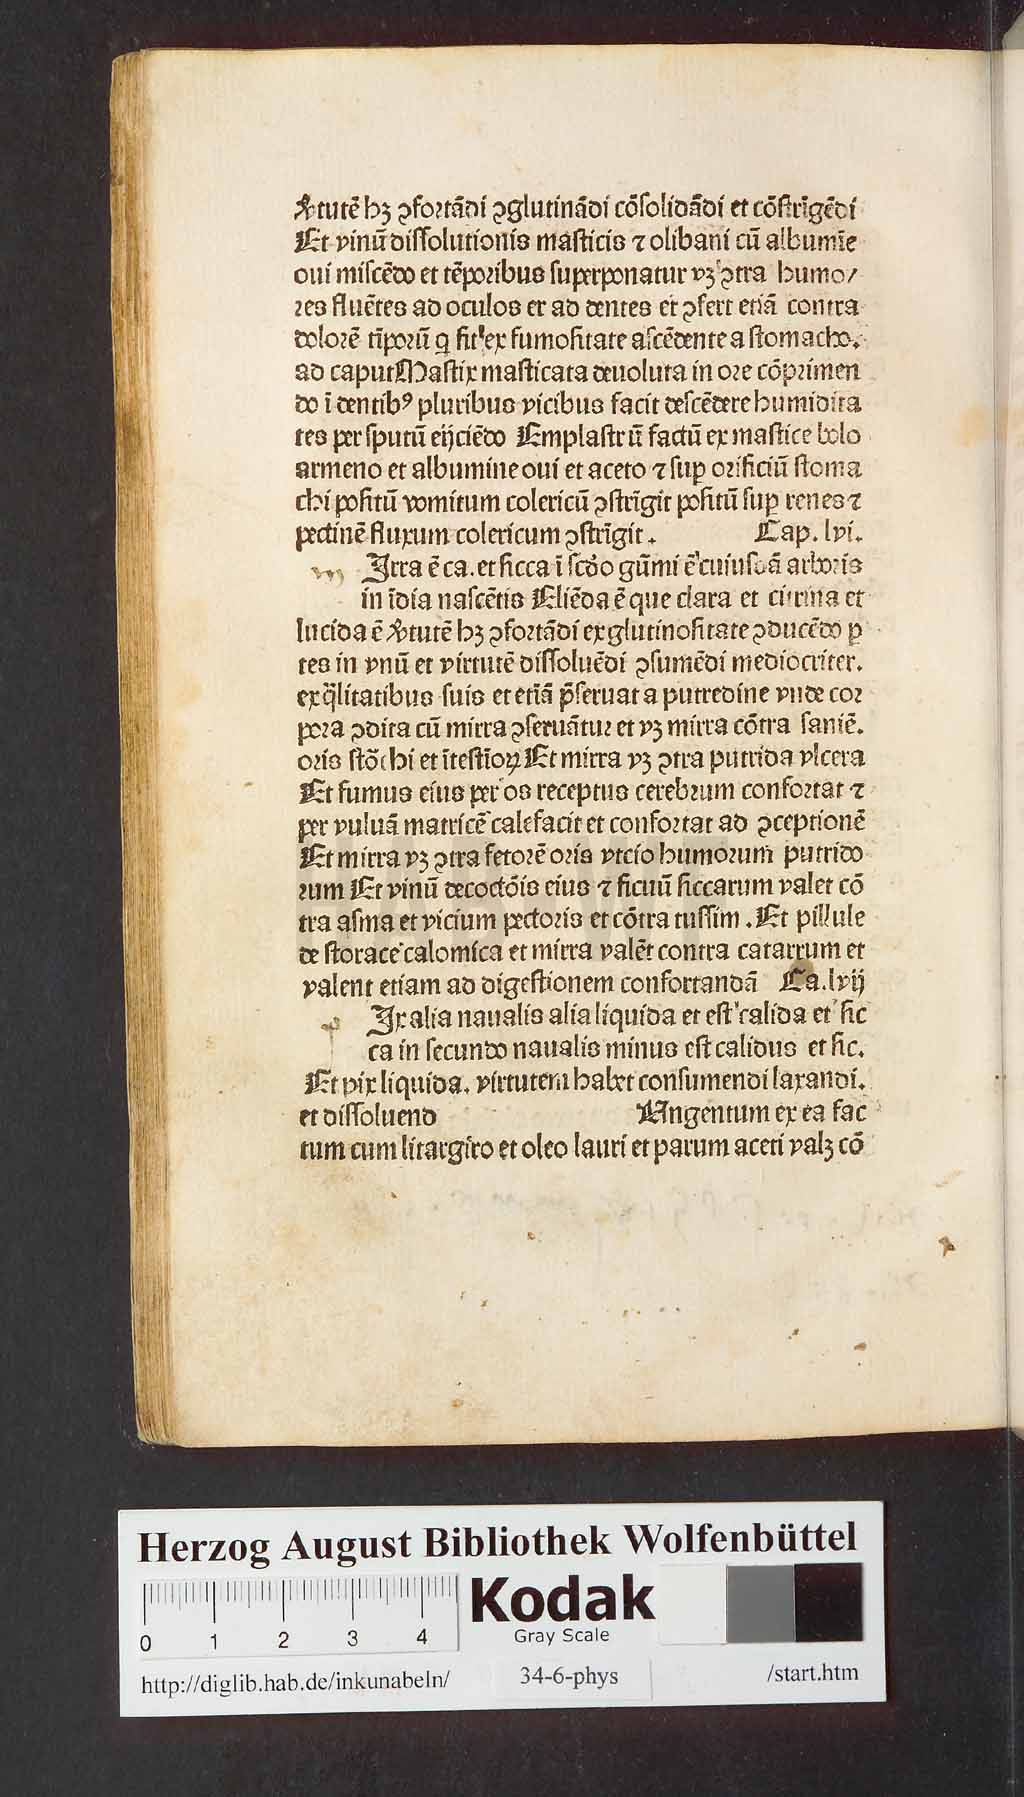 v̓tutē hꝫ ꝯfortādi ꝯglutinādi cōſolidādi et cōſtrīgēdi
Et vinū diſſolutionis maſticis ⁊ olibani cū albumīe
oui miſcēdo et tēporibus ſuperponatur vꝫ ꝯtra humo/
res fluētes ad oculos et ad dentes et ꝯfert etiā contra
dolorē tīporū q̨ fit ex fumoſitate aſcēdente a ſtomacho.
ad caput Maſtix maſticata deuoluta in ore cōprimen
do ī dentibꝰ pluribus vicibus facit deſcēdere humidita
tes per ſputū eijciēdo Emplaſtrū factū ex maſtice bolo
armeno et albumine oui et aceto ⁊ ſuꝑ orificiū ſtoma
chi poſitū vomitum colericū ꝯſtrīgit poſitū ſuꝑ renes ⁊
pectinē fluxum colericum ꝯſtrīgit. Cap. lvi.
m Irra ē ca. et ſicca ī ſcdo gūmi ē cuiuſdā arboris
in īdia naſcētis Eliēda ē que clara et citrina et
lucida ē v̓tutē hꝫ ꝯfortādi ex glutinoſitate ꝯducēdo ꝑ
tes in vnū et virtutē diſſoluēdi ꝯſumēdi mediocriter.
ex q̄litatibus ſuis et etiā p̄ſeruat a putredine vnde cor
pora ꝯdita cū mirra ꝯſeruātur et vꝫ mirra cōtra ſaniē.
oris ſtōchi et īteſtīoꝝ Et mirra vꝫ ꝯtra putrida vlcera
Et fumus eius per os receptus cerebrum confortat ⁊
per vuluā matricē calefacit et confortat ad ꝯceptionē
Et mirra vꝫ ꝯtra fetorē oris vtcio humorum putrido
rum Et vinū decoctōis eius ⁊ ficuū ſiccarum valet cō
tra aſma et vicium pectoris et cōtra tuſſim. Et pillule
de ſtorace calomica et mirra valēt contra catarrum et
valent etiam ad digeſtionem confortandā Ca. lvij
p Ix alia naualis alia liquida et eſt calida et ſic
ca in ſecundo naualis minus eſt calidus et ſic.
Et pix liquida. virtutem habet conſumendi laxandi.
et diſſoluend Ungentum ex ea fac
tum cum litargiro et oleo lauri et parum aceti valꝫ cō
Herzog August Bibliothek Wolfenbüttel
0 1 2 3 4
Kodak
Gray Scale
http://diglib.hab.de/inkunabeln/ 34-6-phys /start.htm